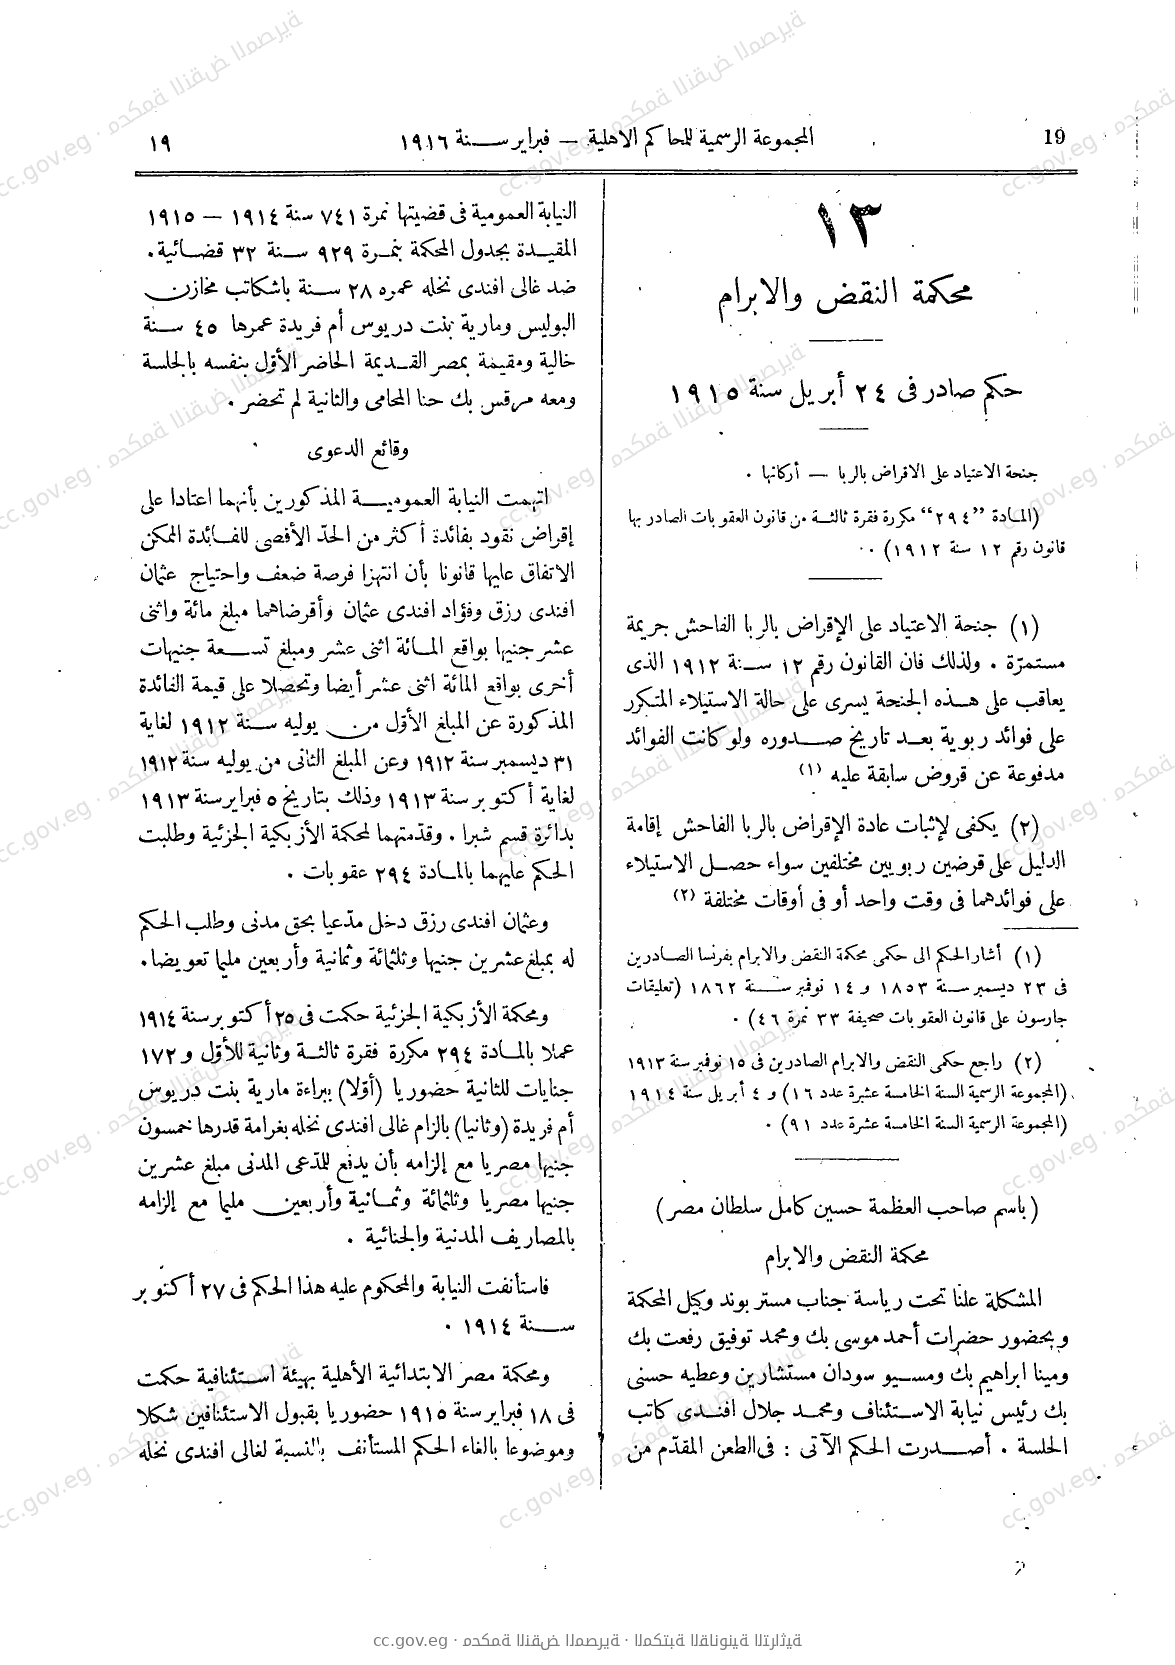 19
المجموعة الرسمية للمحاكم الاهلية — فبراير سنة ١٩١٦
١٩
١٣
محكمة النقض والابرام
حكم صادر فى ٢٤ أبريل سنة ١٩١٥
جنحة الاعتياد على الاقراض بالربا — أركانها .
(المادة ”٢٩٤“ مكررة فقرة ثالثة من قانون العقوبات الصادر بها
قانون رقم ١٢ سنة ١٩١٢) .
(١) جنحة الاعتياد على الإقراض بالربا الفاحش جريمة
مستمرّة . ولذلك فان القانون رقم ١٢ سنة ١٩١٢ الذى
يعاقب على هذه الجنحة يسرى على حالة الاستيلاء المتكرر
على فوائد ربوية بعد تاريخ صدوره ولو كانت الفوائد
مدفوعة عن قروض سابقة عليه (١)
(٢) يكفى لإثبات عادة الإقراض بالربا الفاحش إقامة
الدليل على قرضين ربويين مختلفين سواء حصل الاستيلاء
على فوائدهما فى وقت واحد أو فى أوقات مختلفة (٢)
(١) أشار الحكم الى حكمى محكمة النقض والابرام بفرنسا الصادرين
فى ٢٣ ديسمبر سنة ١٨٥٣ و ١٤ نوفمبر سنة ١٨٦٢ (تعليقات
جارسون على قانون العقوبات صحيفة ٣٣ نمرة ٤٦) .
(٢) راجع حكمى النقض والابرام الصادرين فى ١٥ نوفمبر سنة ١٩١٣
(المجموعة الرسمية السنة الخامسة عشرة عدد ١٦) و ٤ أبريل سنة ١٩١٤
(المجموعة الرسمية السنة الخامسة عشرة عدد ٩١) .
(باسم صاحب العظمة حسين كامل سلطان مصر)
محكمة النقض والابرام
المشكلة علنا تحت رياسة جناب مستر بوند وكيل المحكمة
وبحضور حضرات أحمد موسى بك ومحمد توفيق رفعت بك
ومينا ابراهيم بك ومسيو سودان مستشارين وعطيه حسنى
بك رئيس نيابة الاستئناف ومحمد جلال افندى كاتب
الجلسة . أصدرت الحكم الآتى : فى الطعن المقدّم من
النيابة العمومية فى قضيتها نمرة ٧٤١ سنة ١٩١٤ — ١٩١٥
المقيدة بجدول المحكمة بنمرة ٩٢٩ سنة ٣٢ قضائية .
ضد غالى افندى نخله عمره ٢٨ سنة باشكاتب مخازن
البوليس ومارية بنت دريوس أم فريدة عمرها ٤٥ سنة
خالية ومقيمة بمصر القديمة الحاضر الأوّل بنفسه بالجلسة
ومعه مرقس بك حنا المحامى والثانية لم تحضر .
وقائع الدعوى
اتهمت النيابة العمومية المذكورين بأنهما اعتادا على
إقراض نقود بفائدة أكثر من الحدّ الأقصى للفائدة الممكن
الاتفاق عليها قانونا بأن انتهزا فرصة ضعف واحتياج عثمان
افندى رزق وفؤاد افندى عثمان وأقرضاهما مبلغ مائة واثنى
عشر جنيها بواقع المائة اثنى عشر ومبلغ تسعة جنيهات
أخرى بواقع المائة اثنى عشر أيضا وتحصلا على قيمة الفائدة
المذكورة عن المبلغ الأوّل من يوليه سنة ١٩١٢ لغاية
٣١ ديسمبر سنة ١٩١٢ وعن المبلغ الثانى من يوليه سنة ١٩١٢
لغاية أكتوبر سنة ١٩١٣ وذلك بتاريخ ٥ فبراير سنة ١٩١٣
بدائرة قسم شبرا . وقدّمتهما لمحكمة الأزبكية الجزئية وطلبت
الحكم عليهما بالمادة ٢٩٤ عقوبات .
وعثمان افندى رزق دخل مدّعيا بحق مدنى وطلب الحكم
له بمبلغ عشرين جنيها وثلثمائة وثمانية وأربعين مليما تعويضا .
ومحكمة الأزبكية الجزئية حكمت فى ٢٥ أكتوبر سنة ١٩١٤
عملا بالمادة ٢٩٤ مكررة فقرة ثالثة وثانية للأوّل و ١٧٢
جنايات للثانية حضوريا (أوّلا) ببراءة مارية بنت دريوس
أم فريدة (وثانيا) بالزام غالى افندى نخله بغرامة قدرها خمسون
جنيها مصريا مع إلزامه بأن يدفع للمدّعى المدنى مبلغ عشرين
جنيها مصريا وثلثمائة وثمانية وأربعين مليما مع إلزامه
بالمصاريف المدنية والجنائية .
فاستأنفت النيابة والمحكوم عليه هذا الحكم فى ٢٧ أكتوبر
سنة ١٩١٤ .
ومحكمة مصر الابتدائية الأهلية بهيئة استئنافية حكمت
فى ١٨ فبراير سنة ١٩١٥ حضوريا بقبول الاستئنافين شكلا
وموضوعا بالغاء الحكم المستأنف بالنسبة لغالى افندى نخله
cc.gov.eg · محكمة النقض المصرية · المكتبة القانونية التراثية